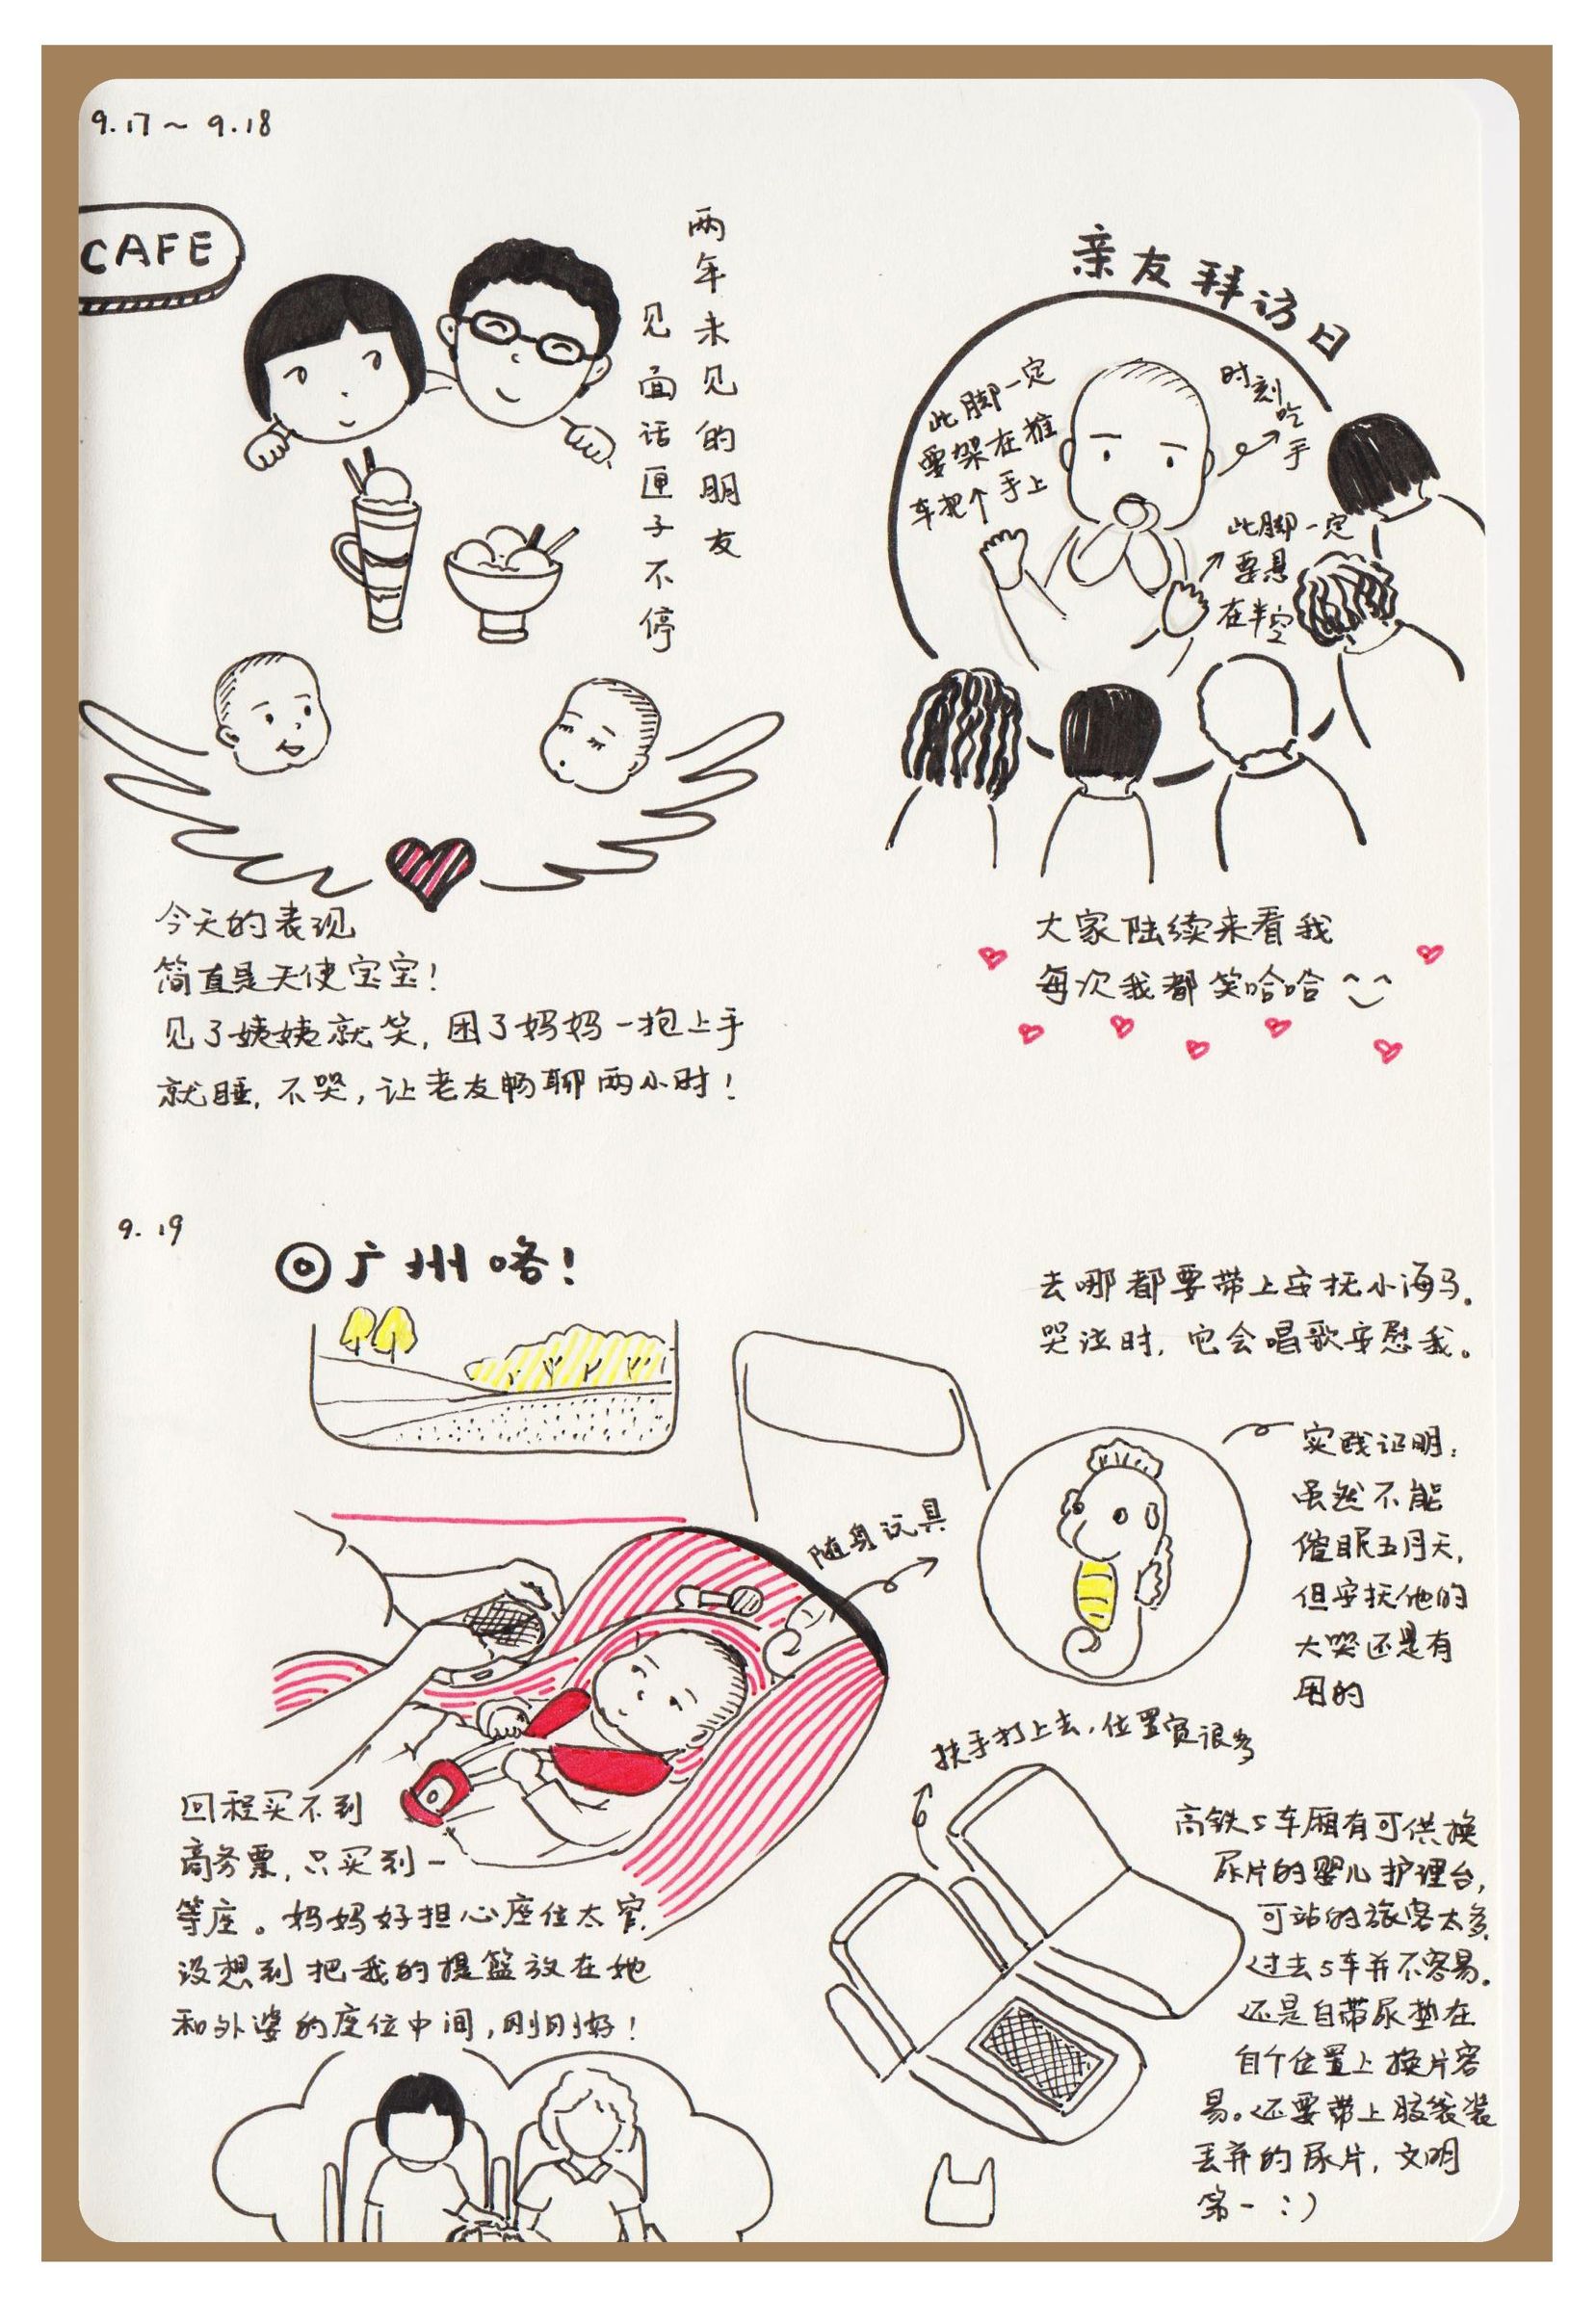 9.17～9.18
CAFE
两年未见的朋友
见面话匣子不停
今天的表现
简直是天使宝宝！
见了姨姨就笑，困了妈妈一抱上手
就睡，不哭，让老友畅聊两小时！
亲友拜访日
此脚一定
要架在推
车把个手上
时刻吃手
此脚一定
要悬
在半空
大家陆续来看我
每次我都笑哈哈
9.19
广州咯！
去哪都要带上安抚小海马。
哭泣时，它会唱歌安慰我。
随身玩具
实践证明：
虽然不能
催眠五月天，
但安抚他的
大哭还是有
用的
回程买不到
商务票，只买到一
等座。妈妈好担心座位太窄，
没想到把我的提篮放在她
和外婆的座位中间，刚刚好！
扶手打上去，位置宽很多
高铁5车厢有可供换
尿片的婴儿护理台，
可站的旅客太多，
过去5车并不容易。
还是自带尿垫在
自个位置上换片容
易。还要带上胶袋装
丢弃的尿片，文明
第一：）